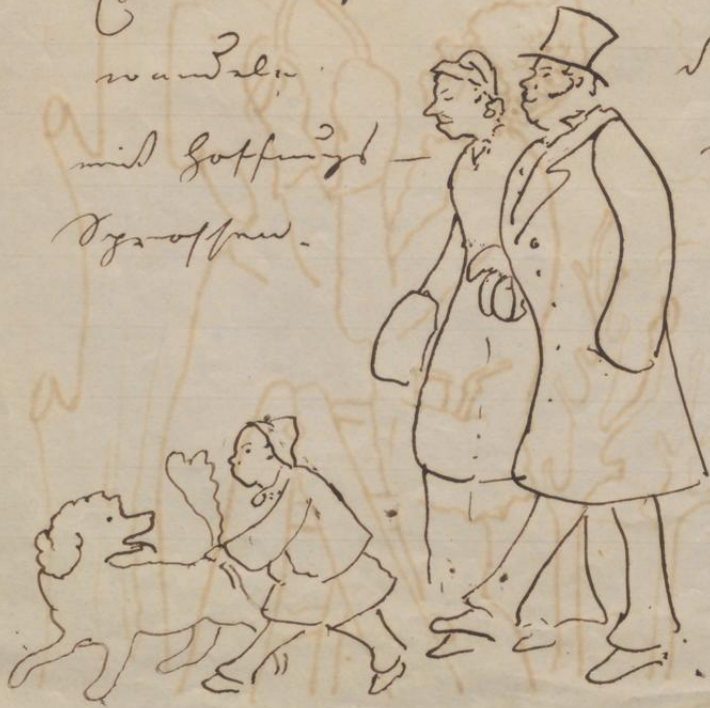 wandeln
mit Hoffnungs-
Sprossen.